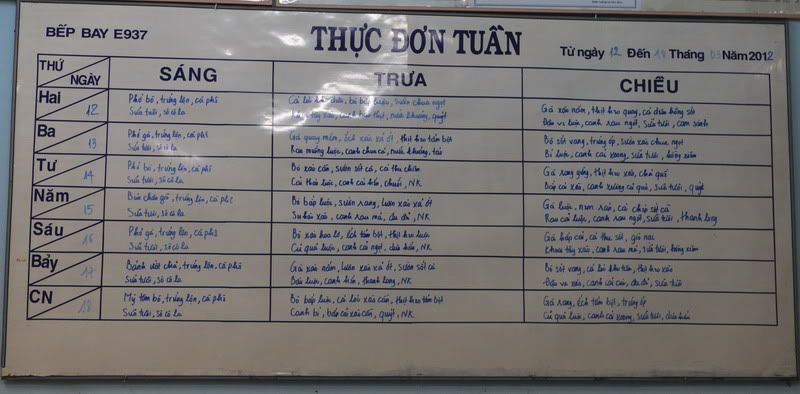 BẾP BAY E937
THỰC ĐƠN TUẦN
Từ ngày 12 Đến 18 Tháng 03 Năm 2012
THỨ NGÀY SÁNG TRƯA CHIỀU
Hai 12
Phở bò, trứng lộn, cà phê
Sữa tươi, sô cô la
Cá lóc kho dừa, bò bóp thấu, sườn chua ngọt
xào, canh thịt, nước khoáng, quýt
Gà xào nấm, thịt heo quay, cá diêu hồng sốt
Đậu ve luộc, canh rau ngót, sữa tươi, cam sành
Ba 13
Phở gà, trứng lộn, cà phê
Sữa tươi, sô cô la
Gà quay mềm, ếch xào xả ớt, thịt heo tẩm bột
Rau muống luộc, canh chua cá, nước khoáng, táo
Bò sốt vang, trứng ốp, sườn xào chua ngọt
Bí luộc, canh cải xoong, sữa tươi, hồng xiêm
Tư 14
Phở bò, trứng lộn, cà phê
Sữa tươi, sô cô la
Bò xào cần, sườn sốt cà, cá thu chiên
Cải luộc, canh cải, chuối, NK
Gà rang gừng, thịt heo xào, chả quế
Bắp cải xào, canh xương củ quả, sữa tươi, quýt
Năm 15
Bún chả giò, trứng lộn, cà phê
Sữa tươi, sô cô la
Bò bắp luộc, sườn rang, lươn xào xả ớt
Su hào xào, canh rau má, đu đủ, NK
Gà luộc, nem rán, cá chép sốt cà
Rau cải luộc, canh rau ngót, sữa tươi, thanh long
Sáu 16
Phở gà, trứng lộn, cà phê
Sữa tươi, sô cô la
Bò xào hoa lơ, ếch tẩm bột, thịt heo luộc
Củ quả luộc, canh cải ngọt, dưa hấu, NK
Gà hấp cải, cá thu sốt, giò nạc
Khoai tây xào, canh rau má, sữa tươi, hồng xiêm
Bảy 17
Bánh ướt chả, trứng lộn, cà phê
Sữa tươi, sô cô la
Gà xào nấm, lươn xào xả ớt, sườn sốt cà
Bầu luộc, canh hến, thanh long, NK
Bò sốt vang, cá lóc kho tàu, thịt heo xào
Đậu ve xào, canh cải cúc, đu đủ, sữa tươi
CN 18
Mỳ tôm bò, trứng lộn, cà phê
Sữa tươi, sô cô la
Bò bắp luộc, cá lóc xào cần, thịt heo tẩm bột
Canh bí, bắp cải xào, quýt, NK
Gà rang, ếch tẩm bột, trứng ốp
Củ quả luộc, canh cải xoong, sữa tươi, dưa hấu